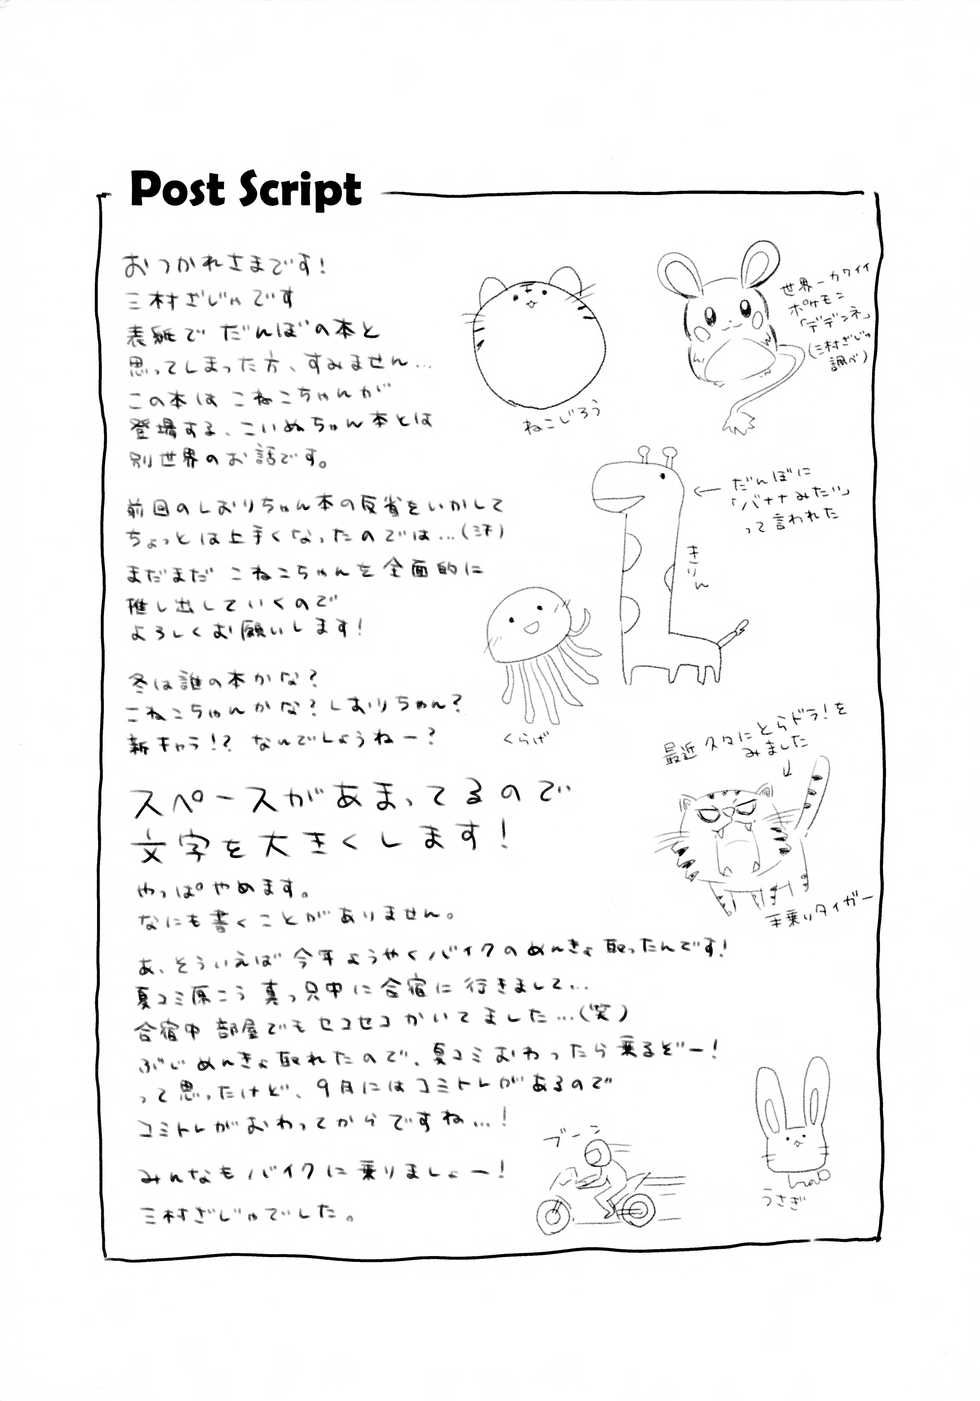 Post Script
おつかれさまです!
三村ざじゃです
表紙でだんぼの本と
思ってしまった方、すみません…
この本はこねこちゃんが
登場する、こいぬちゃん本とは
別世界のお話です。
前回のしおりちゃん本の反省をいかして
ちょっとは上手くなったのでは…(汗)
まだまだこねこちゃんを全面的に
推し出していくので
よろしくお願いします!
冬は誰の本かな?
こねこちゃんかな?しおりちゃん?
新キャラ!?なんでしょうねー?
スペースがあまってるので
文字を大きくします!
やっぱやめます。
なにも書くことがありません。
あ、そういえば今年ようやくバイクのめんきょ取ったんです!
夏コミ原こう真っ只中に合宿に行きまして…
合宿中部屋でもセコセコかいてました…(笑)
ぶじめんきょ取れたので、夏コミおわったら乗るぞー!
って思ったけど、9月にはコミトレがあるので
コミトレがおわってからですね…!
みんなもバイクに乗りましょー!
三村ざじゃでした。
ねこじろう
世界一カワイイ
ポケモン
「デデンネ」
(三村ざじゃ
調べ)
だんぼに
「バナナみたい」
って言われた
きりん
くらげ
最近久々にとらドラ!を
みました
手乗りタイガー
ブーン
うさぎ